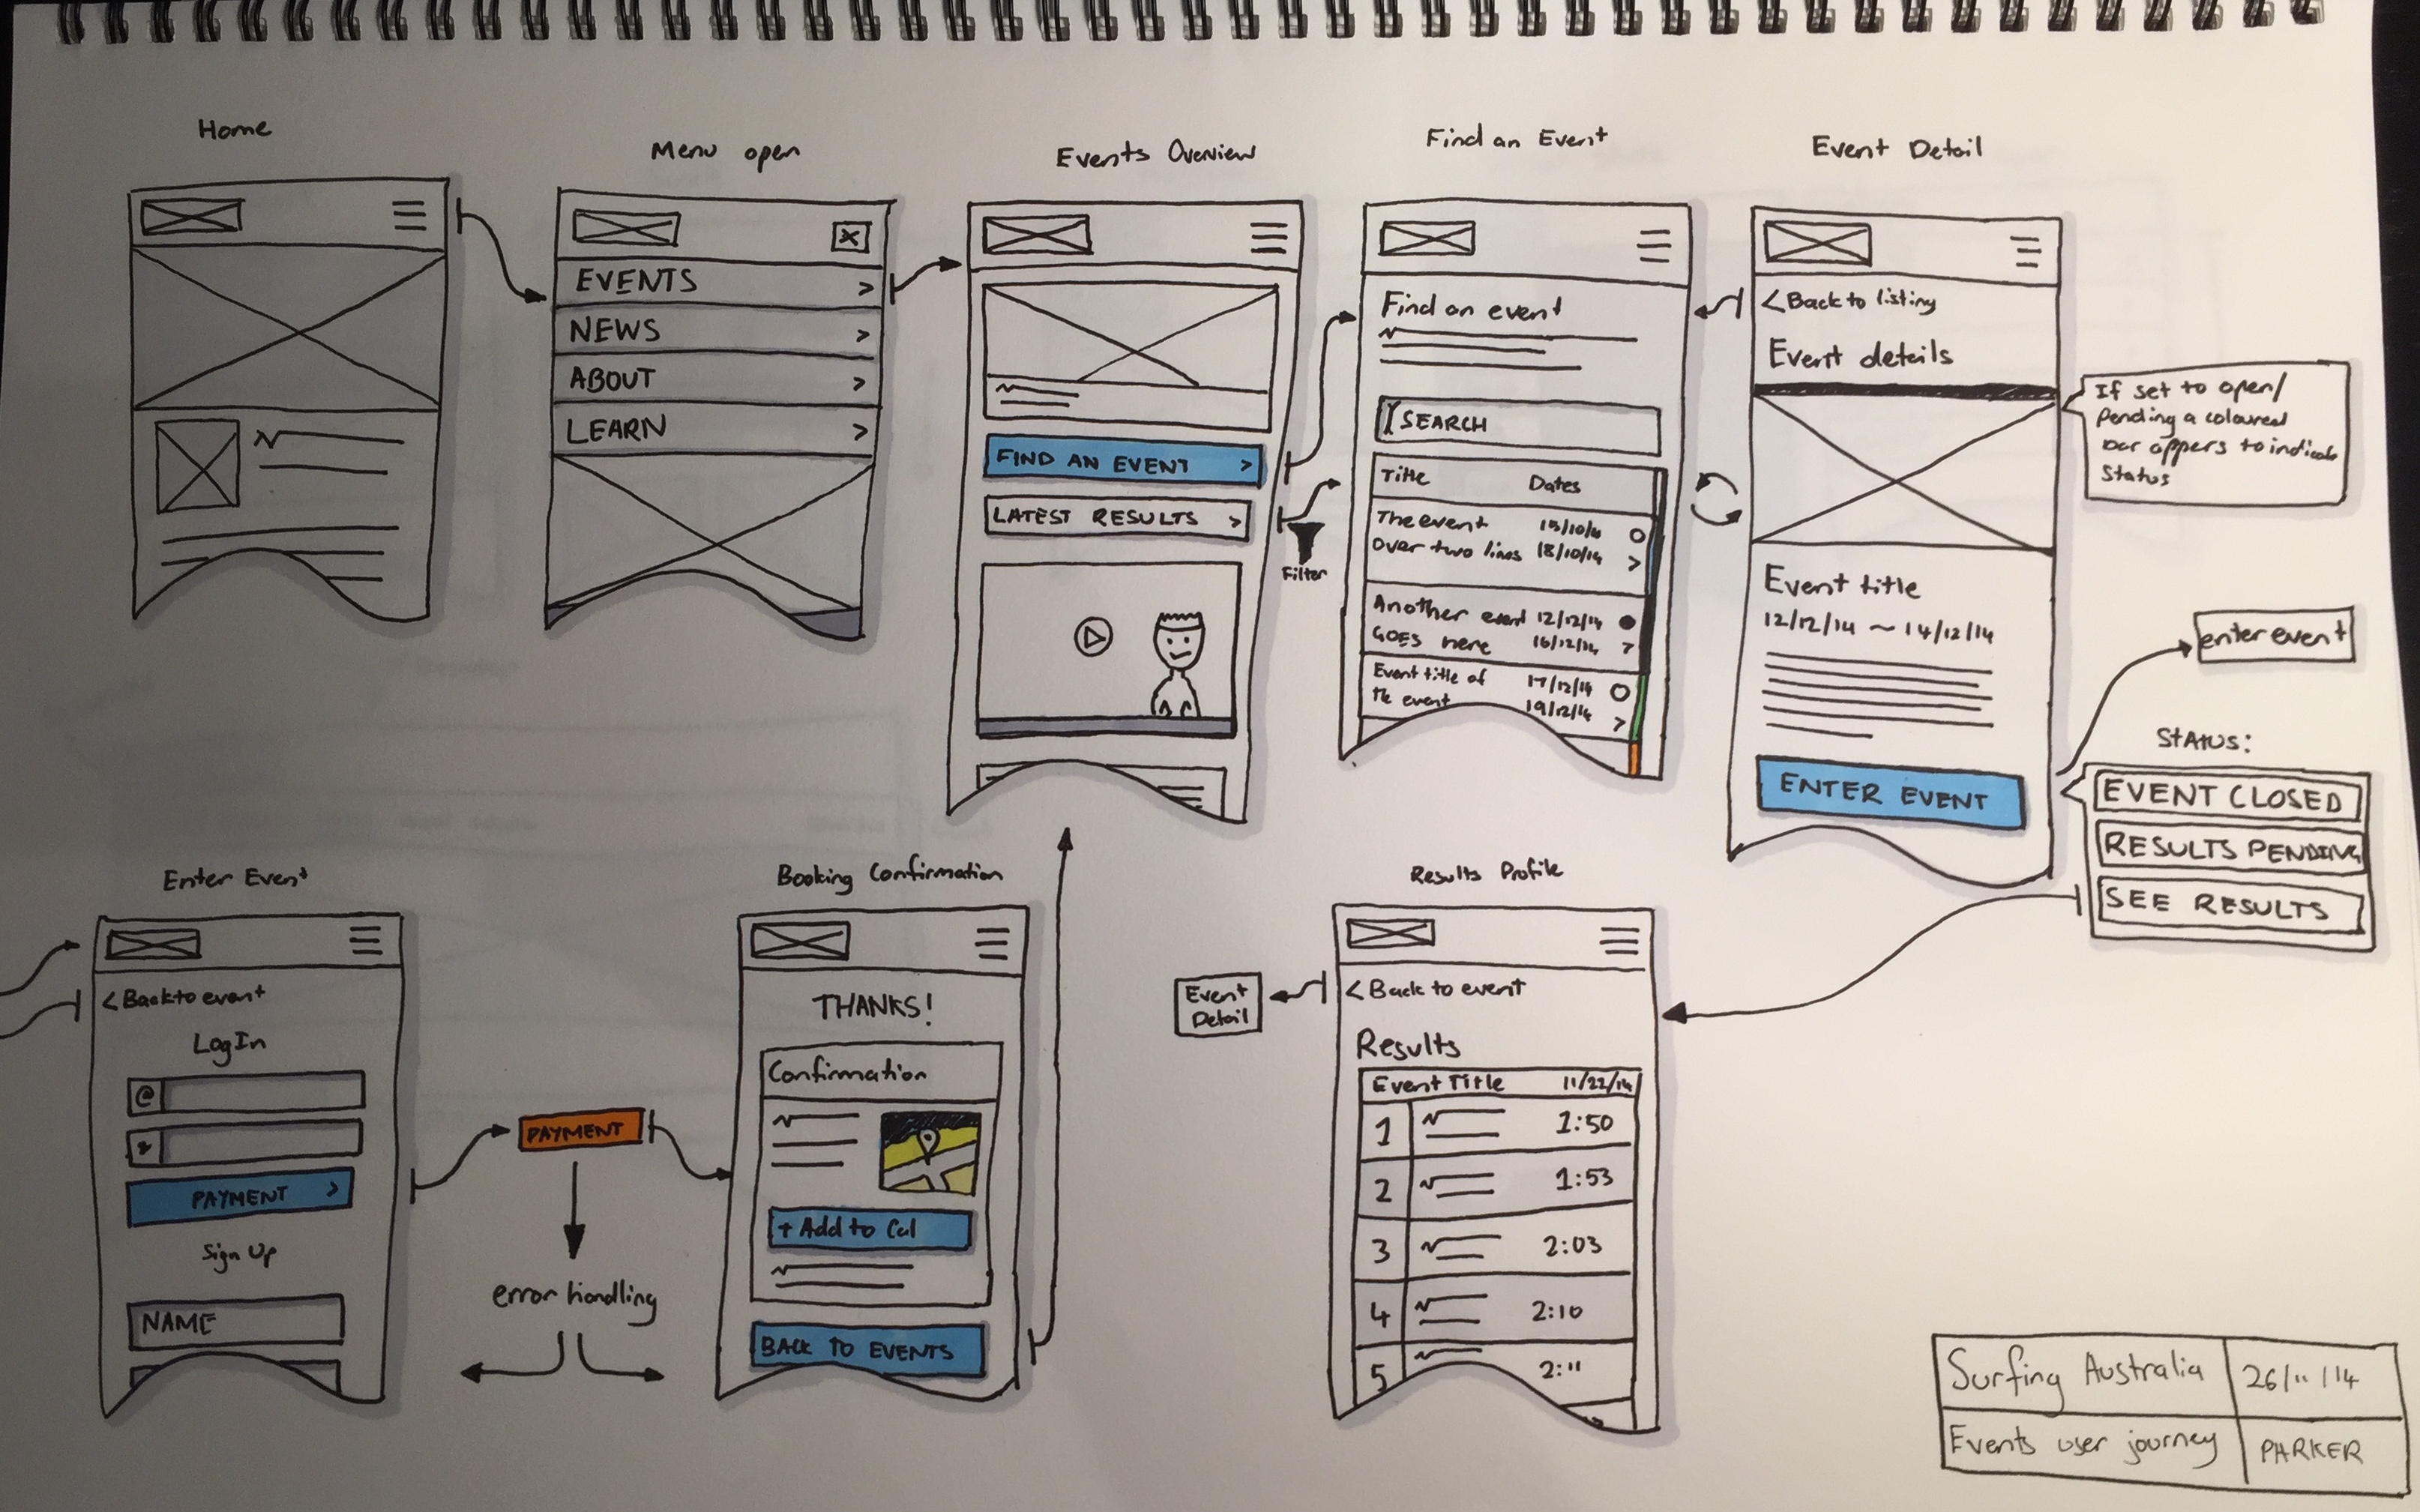 Home
Menu open
EVENTS >
NEWS >
ABOUT >
LEARN >
Events Overview
FIND AN EVENT >
LATEST RESULTS >
Filter
Find an Event
Find an event
SEARCH
Title Dates
The event 15/10/14
Over two lines 18/10/14 >
Another event 12/12/14
GOES here 16/12/14 >
Event title of 17/12/14
the event 19/12/14 >
Event Detail
< Back to listing
Event details
Event title
12/12/14 ~ 14/12/14
ENTER EVENT
If set to open/
Pending a coloured
bar appers to indicate
Status
enter event
Status:
EVENT CLOSED
RESULTS PENDING
SEE RESULTS
Enter Event
< Back to event
Log In
@
PAYMENT >
Sign Up
NAME
PAYMENT
error handling
Booking Confirmation
THANKS!
Confirmation
+ Add to Cal
BACK TO EVENTS
Results Profile
Event
Detail
< Back to event
Results
Event Title 11/22/14
1 1:50
2 1:53
3 2:03
4 2:10
5 2:11
Surfing Australia 26/11/14
Events user journey PARKER